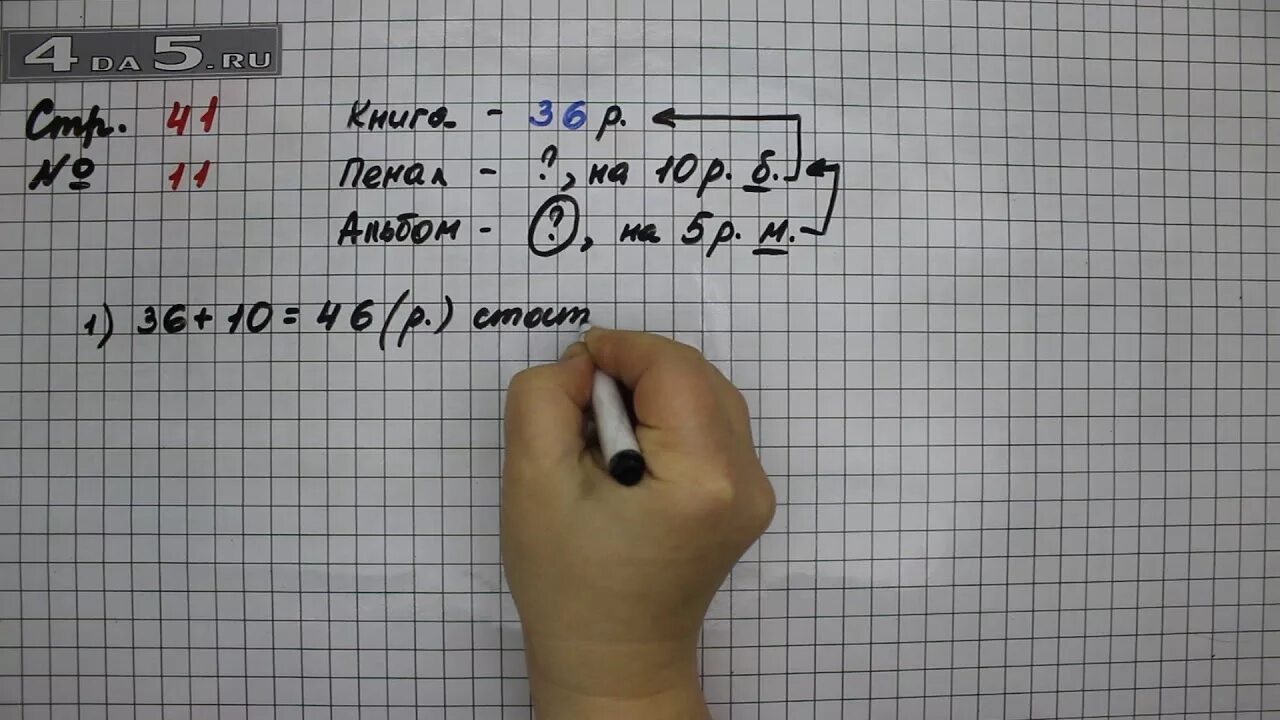 4DA5.RU
Стр. 41
№ 11
Книга - 36 р.
Пенал - ?, на 10 р. б.
Альбом - ?, на 5 р. м.
1) 36 + 10 = 46 (р.) стоит